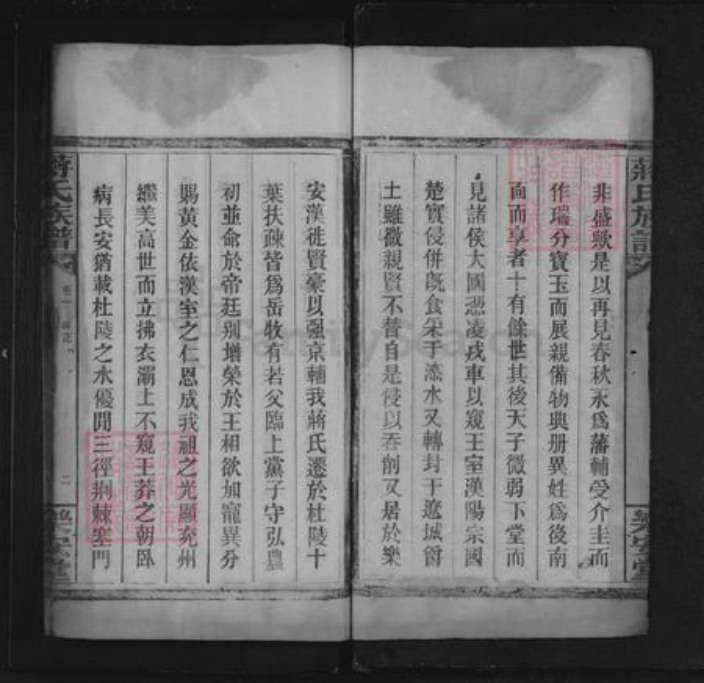 蔣氏族譜
非盛歟是以再見春秋永爲藩輔受介圭而
作瑞分寶玉而展親備物典册異姓爲後南
面而享者十有餘世其後天子微弱下堂而
見諸侯大國憑凌戎車以窺王室漢陽宗國
楚實侵併旣食采于 水又轉封于遼城爵
土雖微親賢不替自是侵以吞削又居於樂
樂安堂
安漢徙賢豪以强京輔我蔣氏遷於杜陵十
葉扶疎皆爲岳牧有若父臨上黨子守弘農
初並命於帝廷别增榮於王相欲加寵異分
賜黃金依漢室之仁恩成我祖之光顯兖州
繼美高世而立拂衣灞上不窺王莽之朝卧
病長安猶載杜陵之水優閒三徑荆棘塞門
蔣氏族譜
卷一
二
樂安堂
FamilySearch